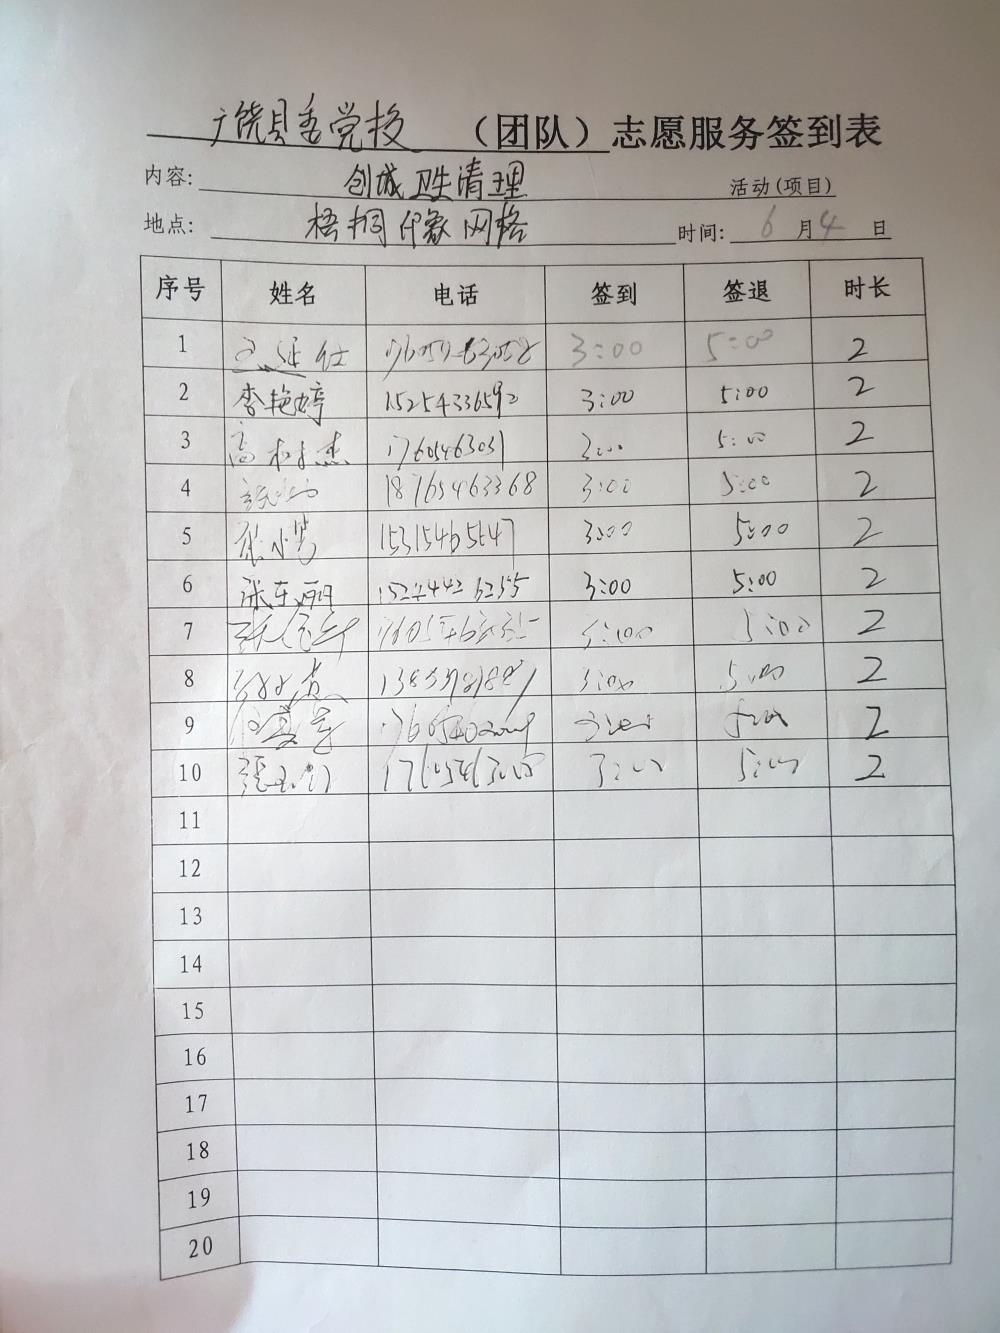 广饶县委党校 （团队）志愿服务签到表
内容: 创城卫生清理 活动(项目)
地点: 梧桐印象网格 时间: 6 月 4 日
序号 姓名 电话 签到 签退 时长
1 3:00 5:00 2
2 李艳婷 15254336592 3:00 5:00 2
3 高树杰 3:00 5:00 2
4 18765463368 3:00 5:00 2
5 张小芳 3:00 5:00 2
6 张东丽 3:00 5:00 2
7 3:00 5:00 2
8 3:00 5:00 2
9 3:00 5:00 2
10 3:00 5:00 2
11
12
13
14
15
16
17
18
19
20